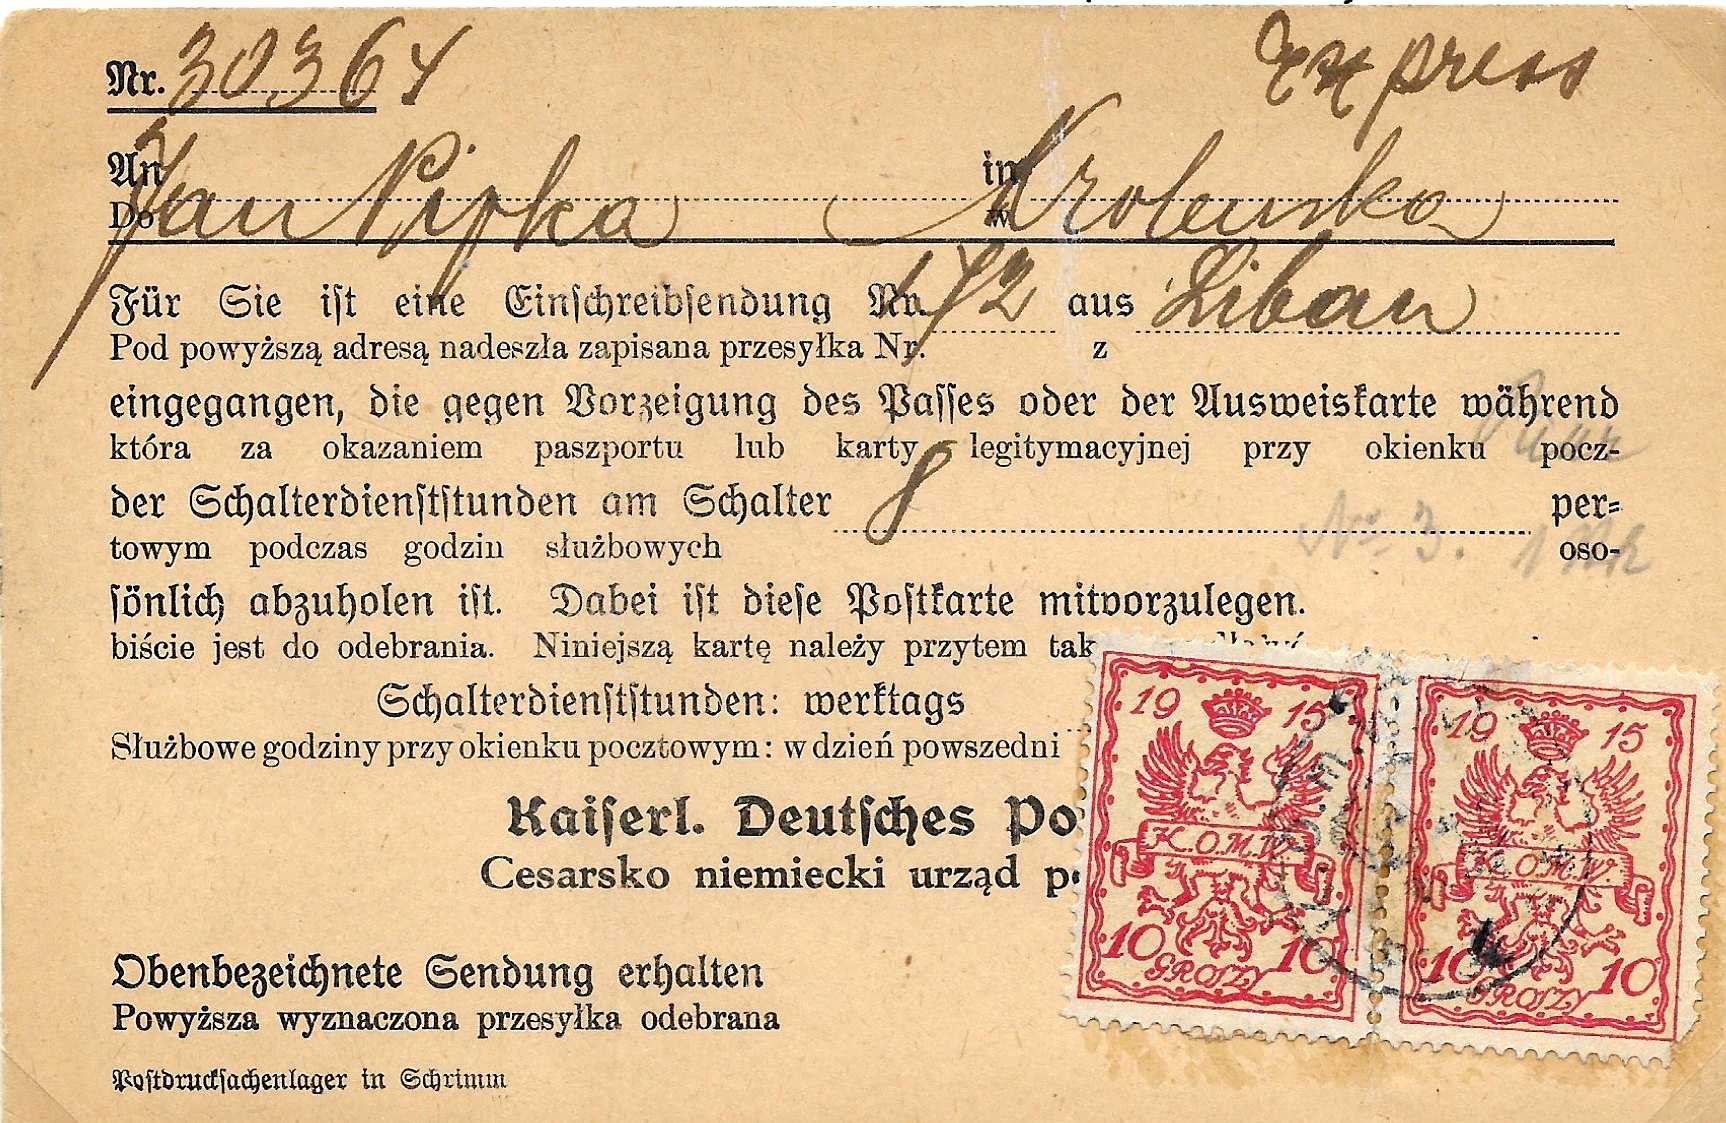 Nr. 30364 Express
An Jan Pipka in
Do w
Für Sie ist eine Einschreibsendung Nr. 142 aus Liban
Pod powyższą adresą nadeszła zapisana przesyłka Nr. z
eingegangen, die gegen Vorzeigung des Passes oder der Ausweiskarte während
która za okazaniem paszportu lub karty legitymacyjnej przy okienku pocz-
der Schalterdienststunden am Schalter 8 per-
towym podczas godzin służbowych oso-
No 3.
sönlich abzuholen ist. Dabei ist diese Postkarte mitvorzulegen.
biście jest do odebrania. Niniejszą kartę należy przytem tak
Schalterdienststunden: werktags
Służbowe godziny przy okienku pocztowym: w dzień powszedni
Kaiserl. Deutsches Po
Cesarsko niemiecki urząd p
Obenbezeichnete Sendung erhalten
Powyższa wyznaczona przesyłka odebrana
Postdrucksachenlager in Schrimm
19 15
K.O.M.W
10 10
GROSZY
19 15
K.O.M.W
10 10
GROSZY